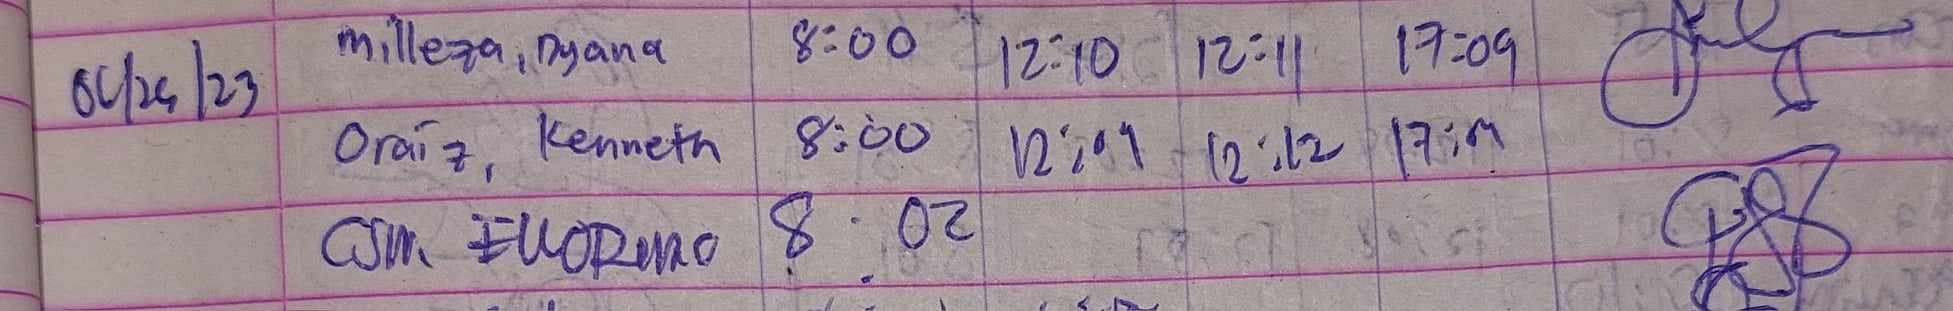 Milleza, Dyana 8:00 12:10 12:11 17:09
/23
Oraiz, Kenneth 8:00 12:09 12:12 17:
CSM. 8:02